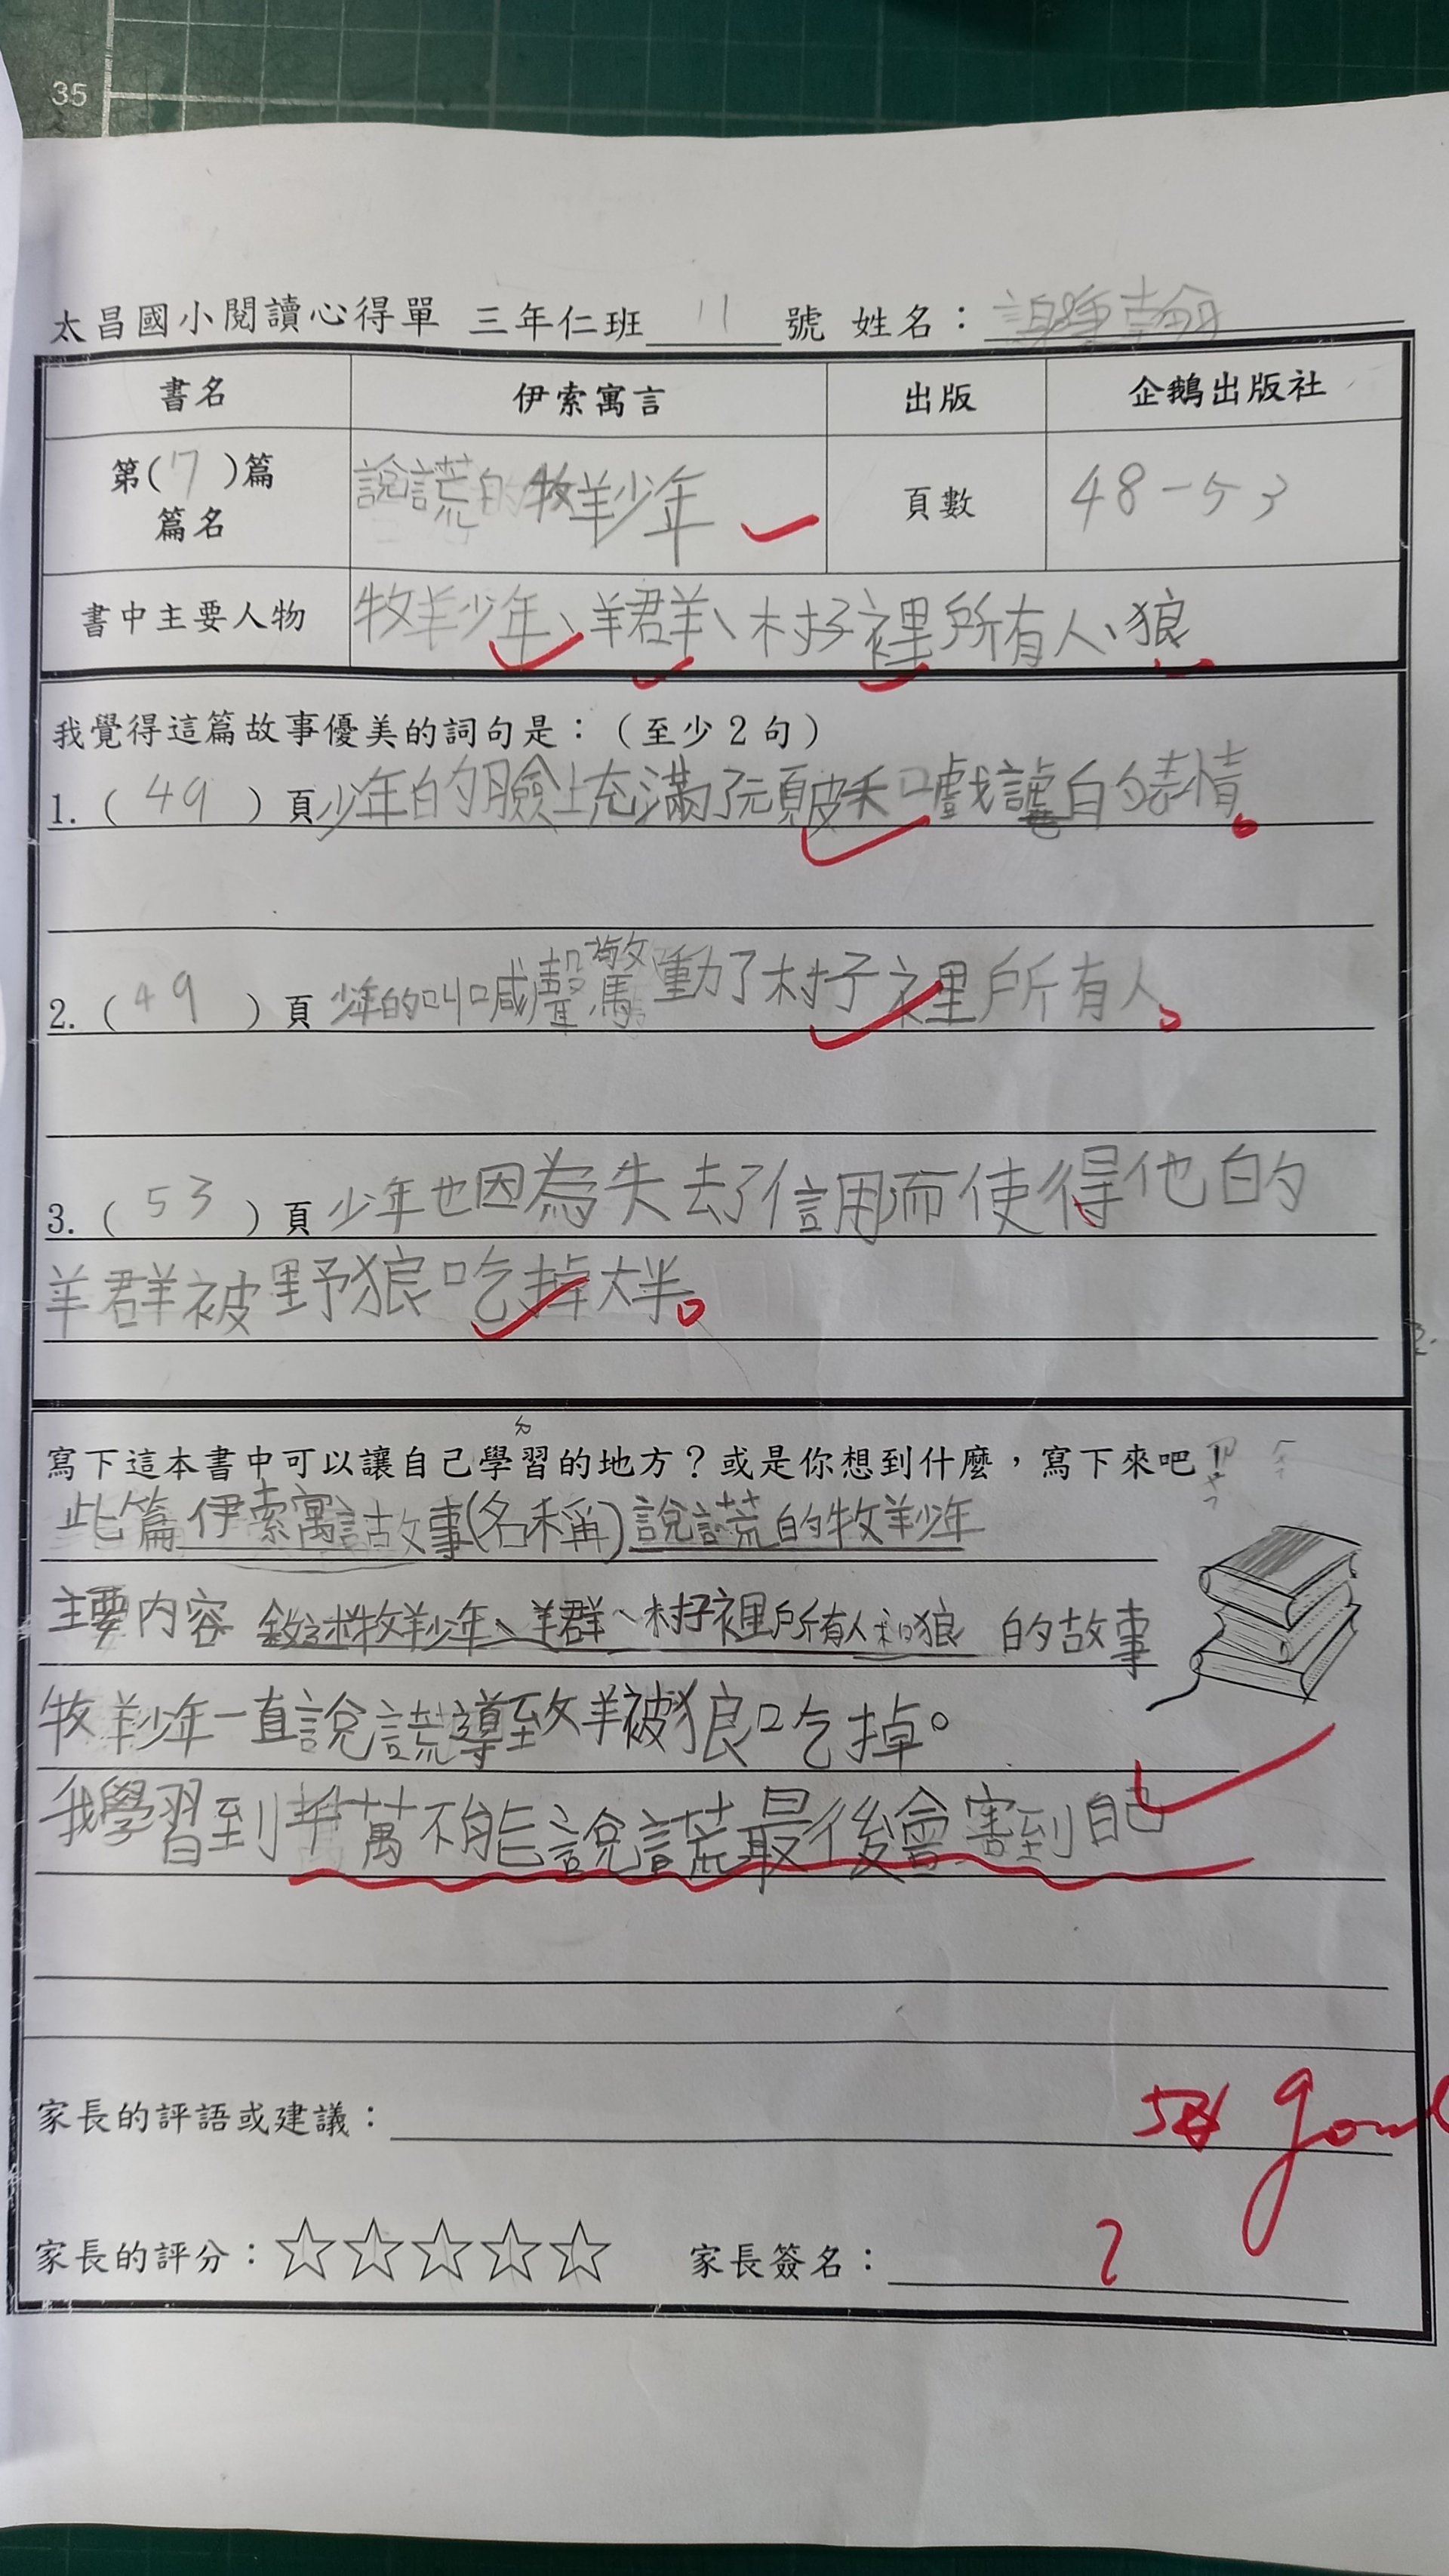 35
太昌國小閱讀心得單 三年仁班 11 號 姓名：謝
書名 伊索寓言 出版 企鵝出版社
第(7)篇 篇名 說謊的牧羊少年 頁數 48-53
書中主要人物 牧羊少年、羊群、村子裡所有人、狼
我覺得這篇故事優美的詞句是：（至少2句）
1.（49）頁少年的臉上充滿了頑皮和戲謔的表情。
2.（49）頁 少年的叫喊聲驚動了村子裡所有人。
3.（53）頁少年也因為失去了信用而使得他的
羊群被野狼吃掉大半。
寫下這本書中可以讓自己學習的地方？或是你想到什麼，寫下來吧！
此篇伊索寓言故事(名稱)說謊的牧羊少年
主要內容 敘述牧羊少年、羊群、村子裡所有人和狼 的故事
牧羊少年一直說謊導致羊被狼吃掉。
我學習到千萬不能說謊最後會害到自己
家長的評語或建議：
good
家長的評分：☆☆☆☆☆ 家長簽名：